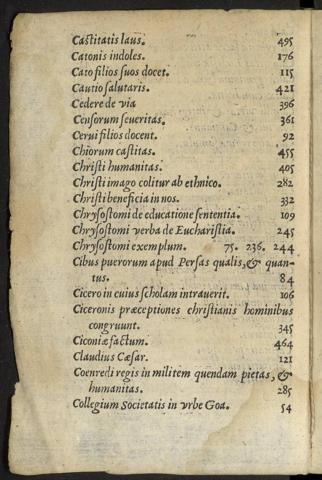 Castitatis laus. 495
Catonis indoles. 176
Cato filios suos docet. 115
Cautio salutaris. 421
Cedere de via 396
Censorum seueritas. 361
Cerui filios docent. 92
Chiorum castitas. 455
Christi humanitas. 405
Christi imago colitur ab ethnico. 282
Christi beneficia in nos. 332
Chrysostomi de educatione sententia. 109
Chrysostomi verba de Eucharistia. 245
Chrysostomi exemplum. 75. 236. 244
Cibus puerorum apud Persas qualis, & quan-
tus. 84
Cicero in cuius scholam intrauerit. 106
Ciceronis præceptiones christianis hominibus
congruunt. 345
Ciconiæ factum. 464
Claudius Cæsar. 121
Coenredi regis in militem quendam pietas, &
humanitas. 285
Collegium Societatis in vrbe Goa. 54